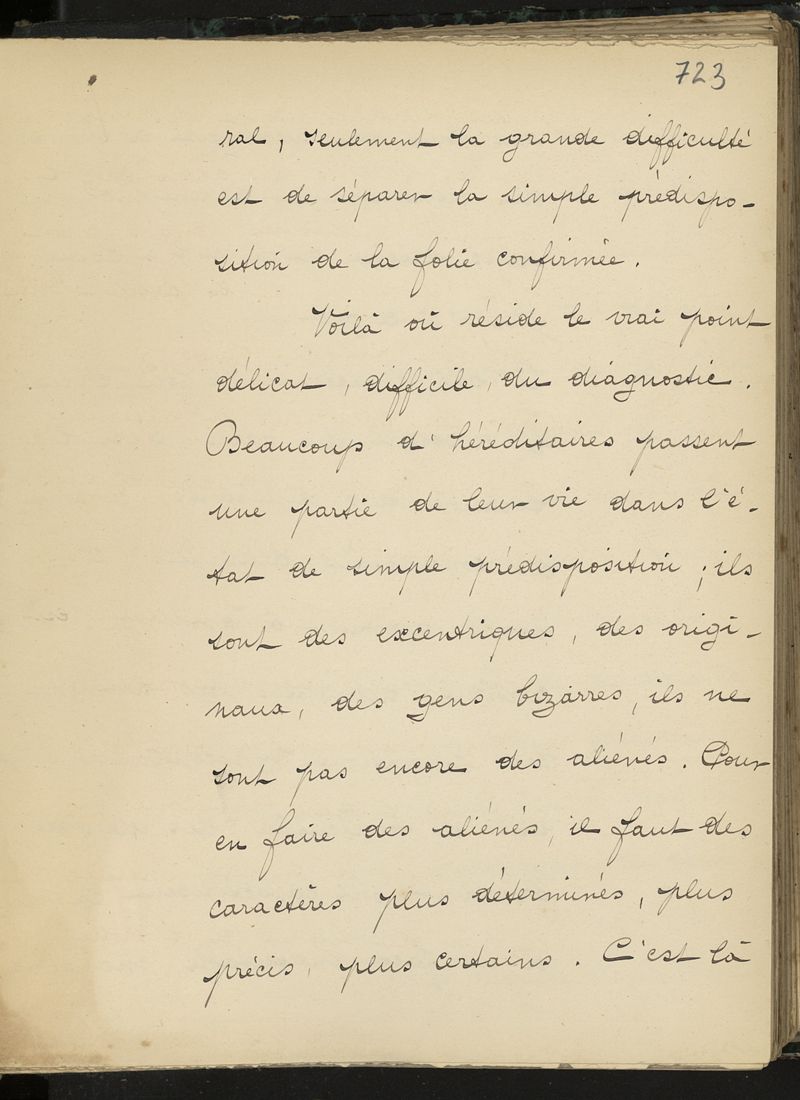 723
ral, seulement la grande difficulté
est de séparer la simple prédispo-
sition de la folie confirmée.
Voilà où réside le vrai point
délicat, difficile, du diagnostic.
Beaucoup d'héréditaires passent
une partie de leur vie dans l'é-
tat de simple prédisposition ; ils
sont des excentriques, des origi-
naux, des gens bizarres, ils ne
sont pas encore des aliénés. Pour
en faire des aliénés, il faut des
caractères plus déterminés, plus
précis, plus certains. C'est là